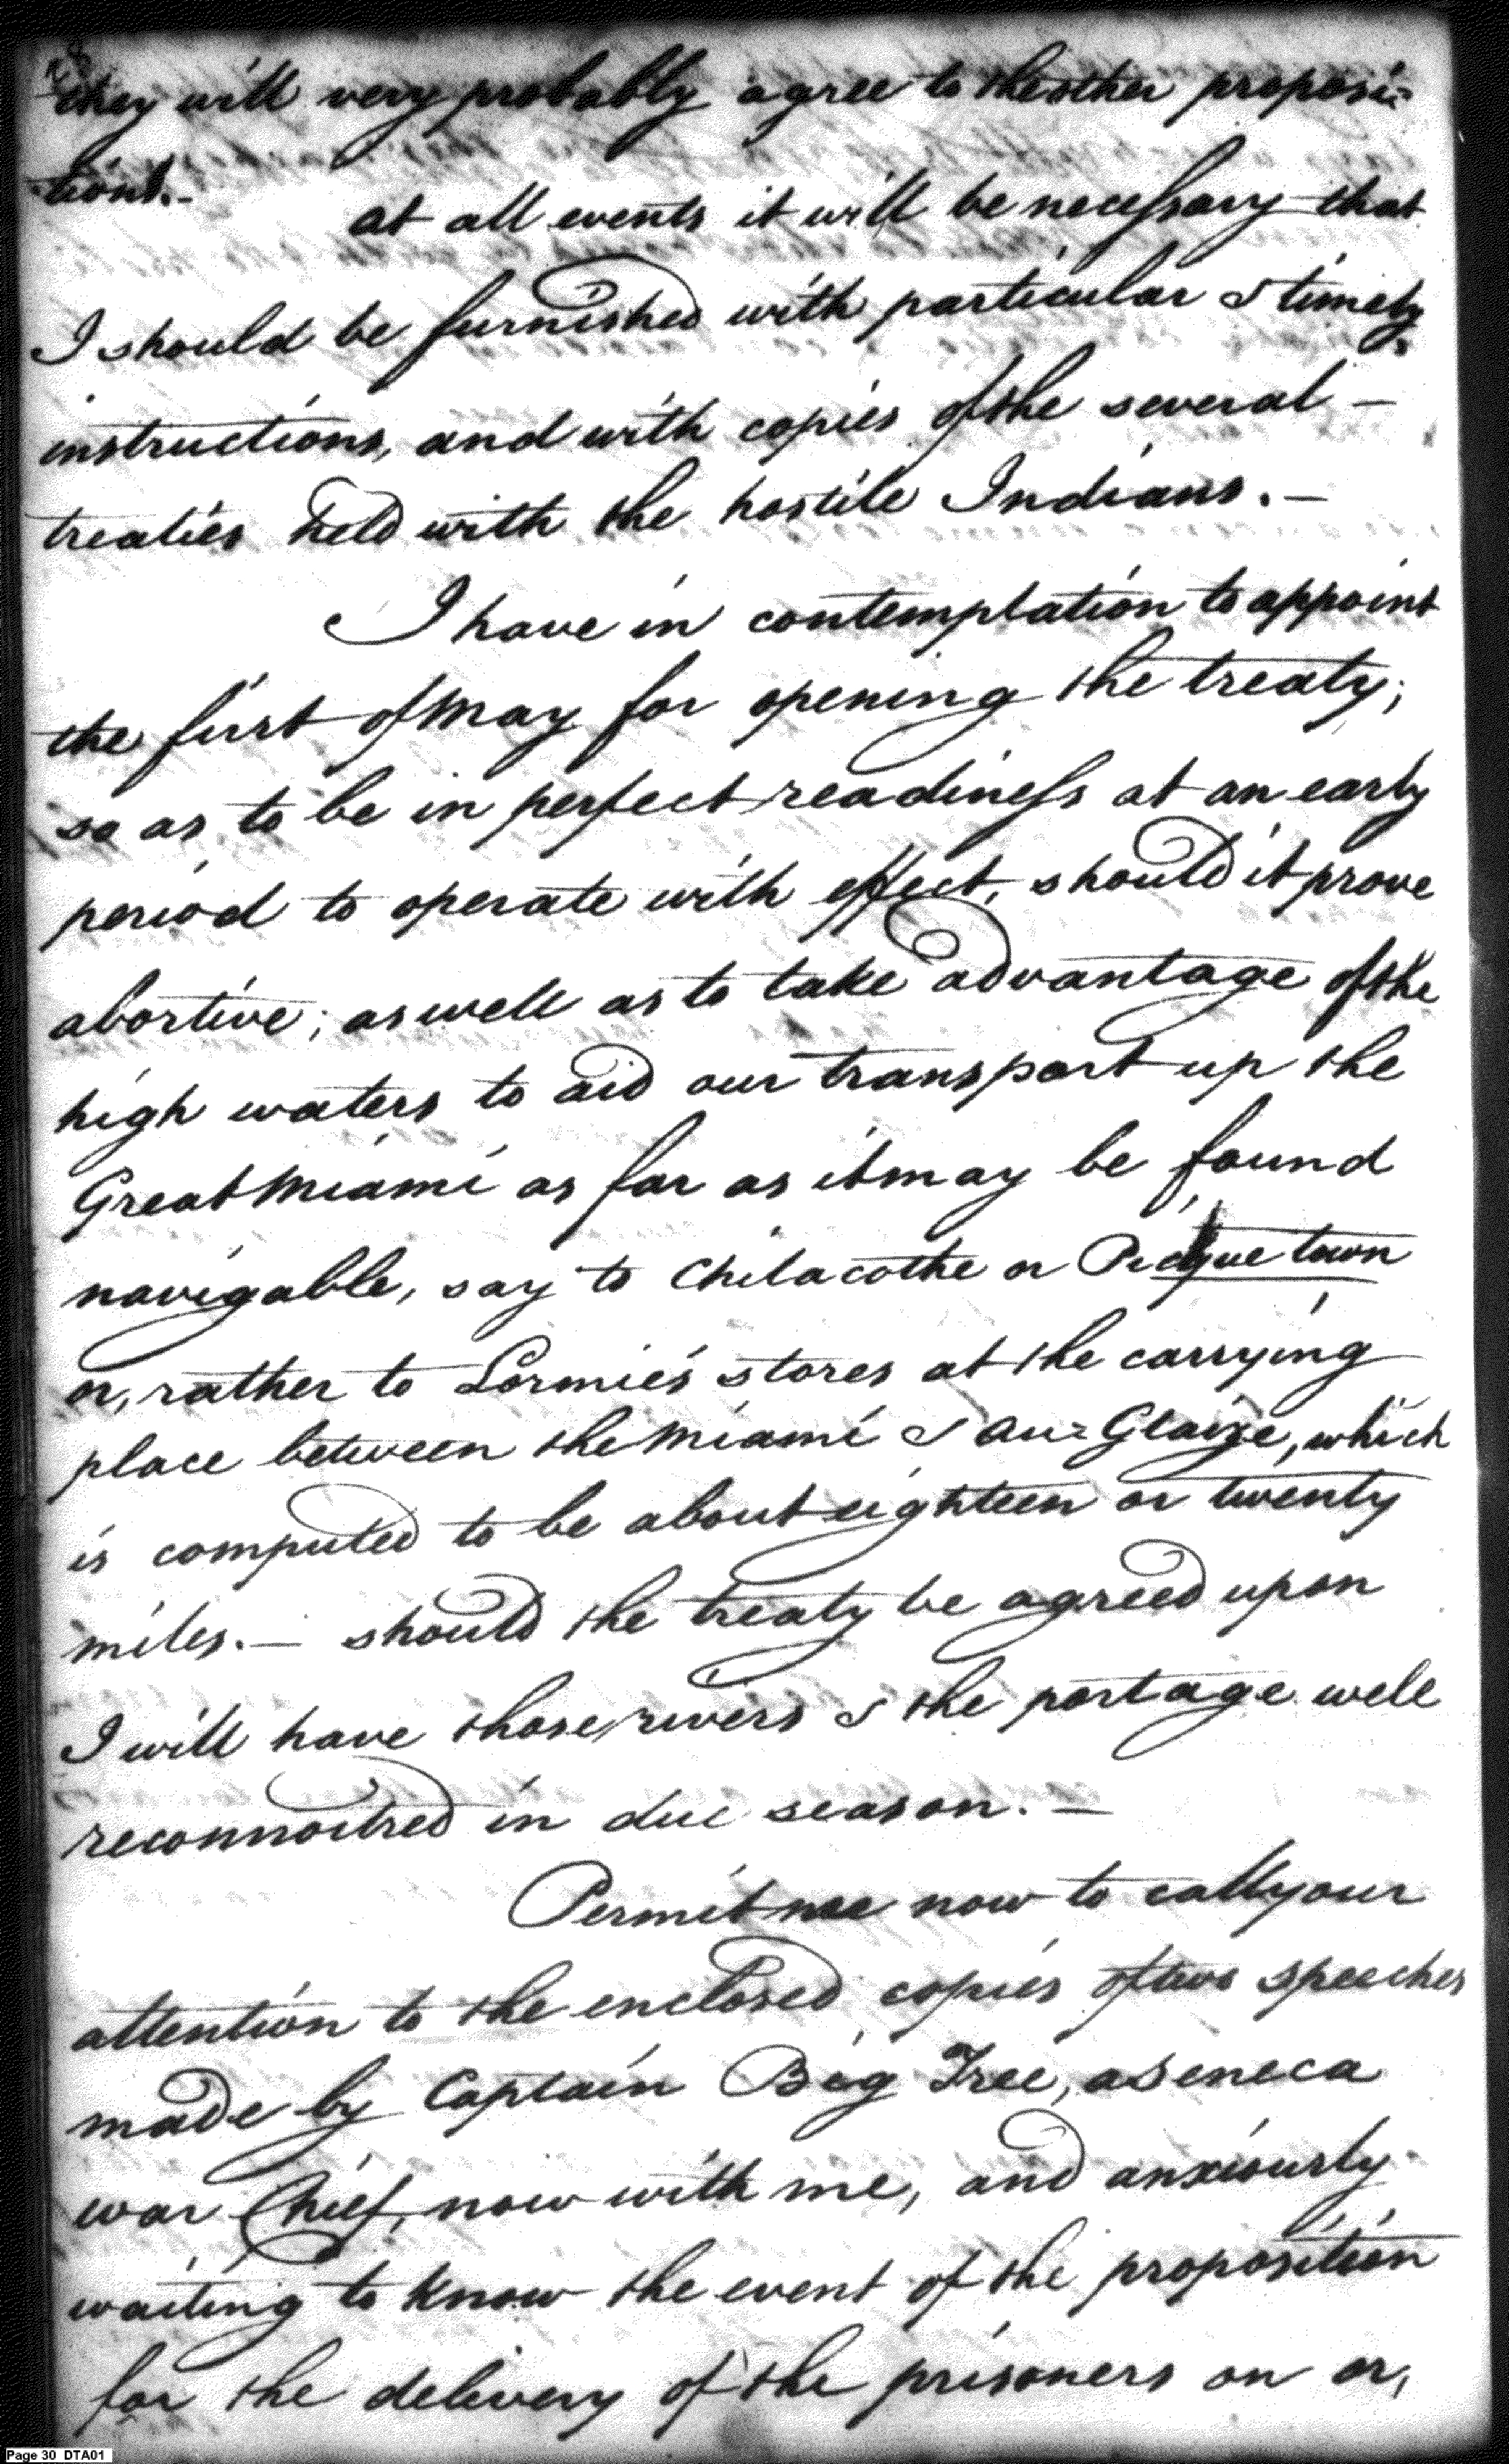 28
they will very probably agree to the other proposi=
tions.-
at all events it will be necessary that
I should be furnished with particular & timely
instructions, and with copies of the several –
treaties held with the hostile Indians. –
I have in contemplation to appoint
the first of May for opening the treaty;
so as to be in perfect readiness at an early
period to operate with effect, should it prove
abortive; as well as to take advantage of the
high waters to aid our transport up the
Great Miami as far as it may be found
navigable, say to Chilacothe or Picque town
or, rather to Lormie's stores at the carrying
place between the Miami & Au=Glaize, which
is computed to be about eighteen or twenty
miles. – should the treaty be agreed upon
I will have those rivers & the portage well
reconnoitred in due season. –
Permit me now to call your
attention to the enclosed copies of two speeches
made by Captain Big Tree, a Seneca
war Chief, now with me, and anxiously
waiting to know the event of the proposition
for the delivery of the prisoners on or,
Page 30 DTA01